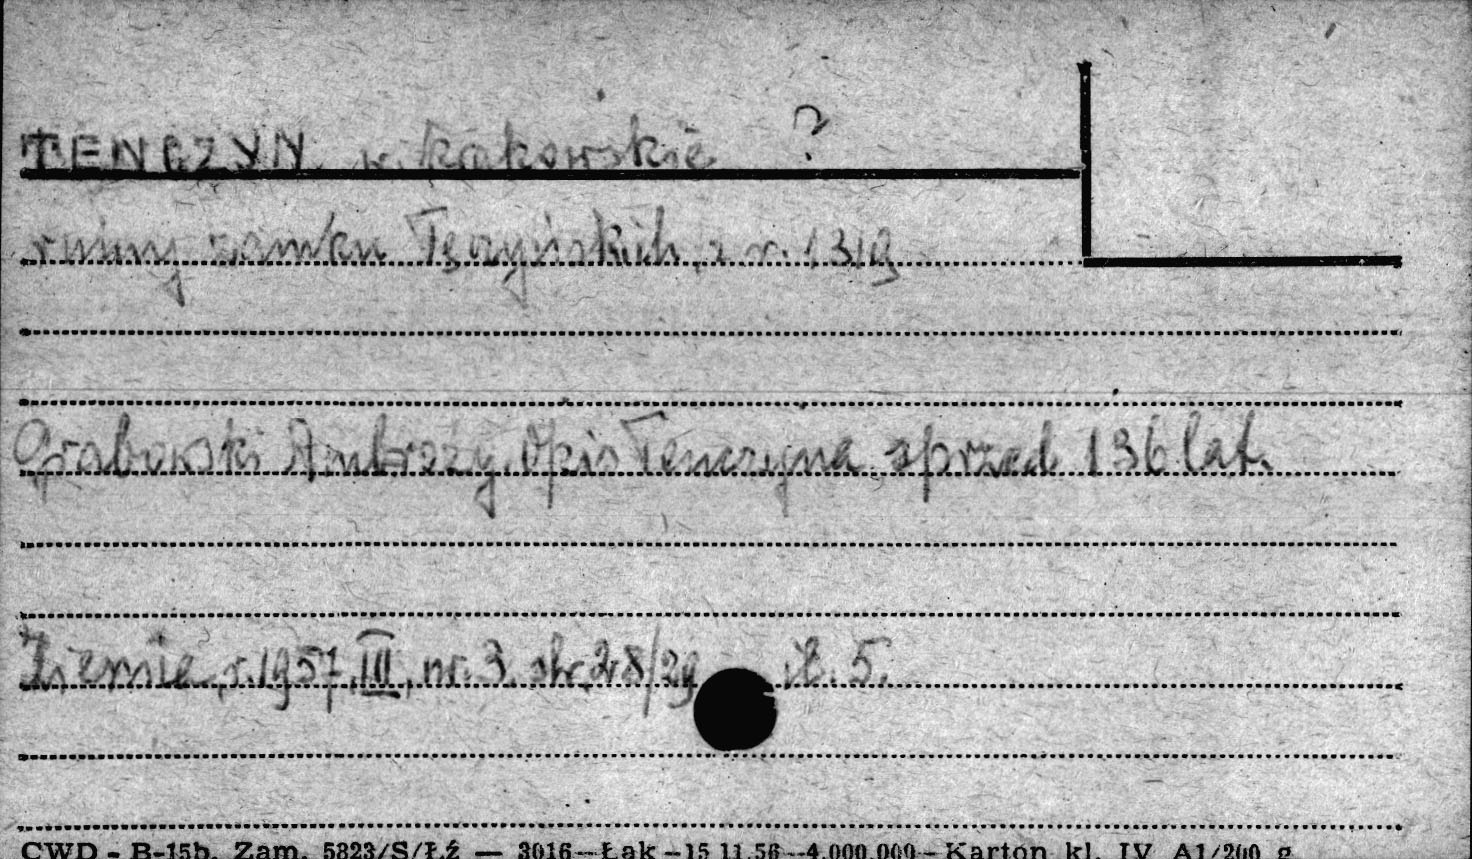 TENCZYN w. krakowskie ?
ruiny zamku Tęczyńskich, z r. 1319
Grabowski Ambroży, Opis Tenczyna sprzed 136 lat.
Ziemia, r. 1957, III, nr. 3. str. 28/29 il. 5.
CWD - B-15b. Zam. 5823/S/Łź — 3016 - Łąk - 15 11.56 - 4.000.000 - Karton kl. IV A1/200 g